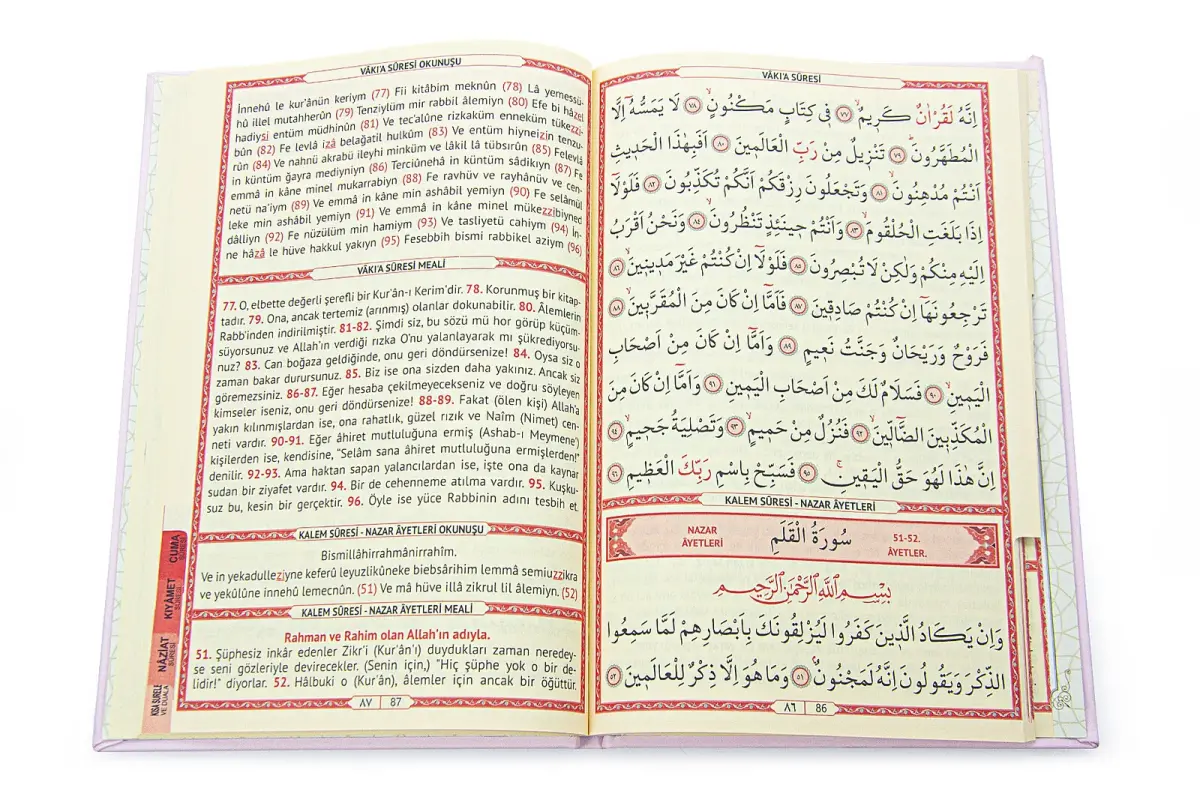 VÂKI'A SÛRESİ
اِنَّهُ لَقُرْاٰنٌ كَر۪يمٌۙ ﴿٧٧﴾ ف۪ي كِتَابٍ مَكْنُونٍۙ ﴿٧٨﴾ لَا يَمَسُّهُٓ اِلَّا
الْمُطَهَّرُونَۜ ﴿٧٩﴾ تَنْز۪يلٌ مِنْ رَبِّ الْعَالَم۪ينَ ﴿٨٠﴾ اَفَبِهٰذَا الْحَد۪يثِ
اَنْتُمْ مُدْهِنُونَۙ ﴿٨١﴾ وَتَجْعَلُونَ رِزْقَكُمْ اَنَّكُمْ تُكَذِّبُونَ ﴿٨٢﴾ فَلَوْلَٓا
اِذَا بَلَغَتِ الْحُلْقُومَۙ ﴿٨٣﴾ وَاَنْتُمْ ح۪ينَئِذٍ تَنْظُرُونَۙ ﴿٨٤﴾ وَنَحْنُ اَقْرَبُ
اِلَيْهِ مِنْكُمْ وَلٰكِنْ لَا تُبْصِرُونَ ﴿٨٥﴾ فَلَوْلَٓا اِنْ كُنْتُمْ غَيْرَ مَد۪ين۪ينَۙ ﴿٨٦﴾
تَرْجِعُونَهَٓا اِنْ كُنْتُمْ صَادِق۪ينَ ﴿٨٧﴾ فَاَمَّٓا اِنْ كَانَ مِنَ الْمُقَرَّب۪ينَۙ ﴿٨٨﴾
فَرَوْحٌ وَرَيْحَانٌ وَجَنَّتُ نَع۪يمٍ ﴿٨٩﴾ وَاَمَّٓا اِنْ كَانَ مِنْ اَصْحَابِ
الْيَم۪ينِۙ ﴿٩٠﴾ فَسَلَامٌ لَكَ مِنْ اَصْحَابِ الْيَم۪ينِ ﴿٩١﴾ وَاَمَّٓا اِنْ كَانَ مِنَ
الْمُكَذِّب۪ينَ الضَّٓالّ۪ينَۙ ﴿٩٢﴾ فَنُزُلٌ مِنْ حَم۪يمٍۙ ﴿٩٣﴾ وَتَصْلِيَةُ جَح۪يمٍ ﴿٩٤﴾
اِنَّ هٰذَا لَهُوَ حَقُّ الْيَق۪ينِۚ ﴿٩٥﴾ فَسَبِّحْ بِاسْمِ رَبِّكَ الْعَظ۪يمِ ﴿٩٦﴾
KALEM SÛRESİ - NAZAR ÂYETLERİ
NAZAR ÂYETLERİ سُورَةُ الْقَلَمِ 51-52. ÂYETLER.
بِسْمِ اللّٰهِ الرَّحْمٰنِ الرَّح۪يمِ
وَاِنْ يَكَادُ الَّذ۪ينَ كَفَرُوا لَيُزْلِقُونَكَ بِاَبْصَارِهِمْ لَمَّا سَمِعُوا
الذِّكْرَ وَيَقُولُونَ اِنَّهُ لَمَجْنُونٌۢ ﴿٥١﴾ وَمَا هُوَ اِلَّا ذِكْرٌ لِلْعَالَم۪ينَ ﴿٥٢﴾
٨٦ 86
VÂKI'A SÛRESİ OKUNUŞU
İnnehû le kur'ânün keriym (77) Fii kitâbim meknûn (78) Lâ yemessü-
hû illel mutahherûn (79) Tenziylüm mir rabbil âlemiyn (80) Efe bi hâzel
hadiysi entüm müdhinûn (81) Ve tec'alûne rizkaküm enneküm tükezzi-
bûn (82) Fe levlâ izâ belağatil hulkûm (83) Ve entüm hiyneizin tenzu-
rûn (84) Ve nahnü akrabü ileyhi minküm ve lâkil lâ tübsırûn (85) Felevlâ
in küntüm ğayra mediyniyn (86) Terciûnehâ in küntüm sâdikıyn (87) Fe
emmâ in kâne minel mukarrabiyn (88) Fe ravhüv ve rayhânüv ve cen-
netü na'iym (89) Ve emmâ in kâne min ashâbil yemiyn (90) Fe selâmül
leke min ashâbil yemiyn (91) Ve emmâ in kâne minel mükezzibiyned
dâlliyn (92) Fe nüzülüm min hamiym (93) Ve tasliyetü cahiym (94) İn-
ne hâzâ le hüve hakkul yakıyn (95) Fesebbih bismi rabbikel aziym (96)
VÂKI'A SÛRESİ MEALİ
77. O, elbette değerli şerefli bir Kur'ân-ı Kerim'dir. 78. Korunmuş bir kitap-
tadır. 79. Ona, ancak tertemiz (arınmış) olanlar dokunabilir. 80. Âlemlerin
Rabb'inden indirilmiştir. 81-82. Şimdi siz, bu sözü mü hor görüp küçüm-
süyorsunuz ve Allah'ın verdiği rızka O'nu yalanlayarak mı şükrediyorsu-
nuz? 83. Can boğaza geldiğinde, onu geri döndürsenize! 84. Oysa siz o
zaman bakar durursunuz. 85. Biz ise ona sizden daha yakınız. Ancak siz
göremezsiniz. 86-87. Eğer hesaba çekilmeyecekseniz ve doğru söyleyen
kimseler iseniz, onu geri döndürsenize! 88-89. Fakat (ölen kişi) Allah'a
yakın kılınmışlardan ise, ona rahatlık, güzel rızık ve Naîm (Nimet) cen-
neti vardır. 90-91. Eğer âhiret mutluluğuna ermiş (Ashab-ı Meymene')
kişilerden ise, kendisine, "Selâm sana âhiret mutluluğuna ermişlerden!"
denilir. 92-93. Ama haktan sapan yalancılardan ise, işte ona da kaynar
sudan bir ziyafet vardır. 94. Bir de cehenneme atılma vardır. 95. Kuşku-
suz bu, kesin bir gerçektir. 96. Öyle ise yüce Rabbinin adını tesbih et.
KALEM SÛRESİ - NAZAR ÂYETLERİ OKUNUŞU
Bismillâhirrahmânirrahîm.
Ve in yekadulleziyne keferû leyuzlikûneke biebsârihim lemmâ semiuzzikra
ve yekûlûne innehû lemecnûn. (51) Ve mâ hüve illâ zikrul lil âlemiyn. (52)
KALEM SÛRESİ - NAZAR ÂYETLERİ MEALİ
Rahman ve Rahim olan Allah'ın adıyla.
51. Şüphesiz inkâr edenler Zikr'i (Kur'ân'ı) duydukları zaman neredey-
se seni gözleriyle devirecekler. (Senin için,) "Hiç şüphe yok o bir de-
lidir!" diyorlar. 52. Hâlbuki o (Kur'ân), âlemler için ancak bir öğüttür.
٨٧ 87
CUMA SÛRESİ
KIYÂMET SÛRESİ
NÂZİÂT SÛRESİ
KISA SÛRELER VE DUALAR